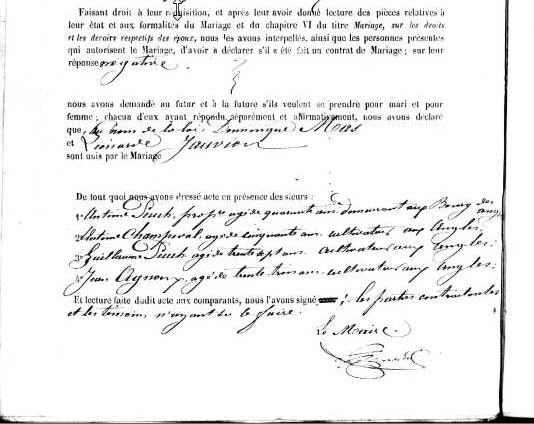 Faisant droit à leur réquisition, et après leur avoir donné lecture des pièces relatives à
leur état et aux formalités du Mariage et du chapitre VI du titre Mariage, sur les droits
et les devoirs respectifs des époux, nous les avons interpellés, ainsi que les personnes présentes
qui autorisent le Mariage, d'avoir a déclarer s'il a été fait un contrat de Mariage ; sur leur
réponse négative
nous avons demandé au futur et à la future s'ils veulent se prendre pour mari et pour
femme ; chacun d'eux ayant répondu séparément et affirmativement, nous avons déclaré
que, au nom de la loi, Dominique Mas
et Léonarde Jauvion
sont unis par le Mariage
De tout quoi nous avons dressé acte en présence des sieurs : De
1° Antoine Puch, prop.re agé de quarante ans demeurant aux Bourg des ang
2° Antoine Champval agé de cinquante ans cultivateur aux Angles,
3° Guillaume Puch agé de trente sept ans cultivateur aux Angles,
4° Jean Agnoux, agé de trente trois ans cultivateur aux Angles ;
Et lecture faite dudit acte aux comparants, nous l'avons signé ; les parties contractantes
et les témoins, n'ayant su le faire.
Le Maire.